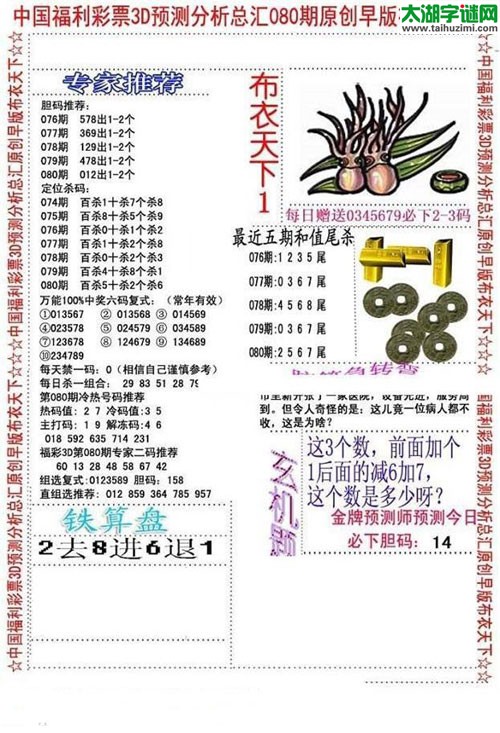 太湖字谜网
www.taihuzimi.com
中国福利彩票3D预测分析总汇080期原创早版
☆中国福利彩票3D预测分析总汇原创早版布衣天下☆
专家推荐
胆码推荐:
076期 578出1-2个
077期 369出1-2个
078期 129出1-2个
079期 478出1-2个
080期 012出1-2个
定位杀码:
074期 百杀1十杀7个杀8
075期 百杀8十杀5个杀9
077期 百杀0十杀1个杀3
078期 百杀9十杀2个杀6
079期 百杀4十杀8个杀1
080期 百杀5十杀2个杀6
万能100%中奖六码复式: (常年有效)
①013567 ② 013568 ③ 014569
④023578 ⑤ 024579 ⑥ 034589
⑦123678 ⑧ 124679 ⑨ 134689
⑩234789
每天禁一码: 0 (相信自己谨慎参考)
每日杀一组合: 29 83 51 28 79
第080期冷热号码推荐
热码值: 2 7 冷码值: 3 5
主打码: 1 9 解冻码: 4 6
018 592 635 714 231
福彩3D第080期专家二码推荐
60 13 28 48 58 67 42
组选复式: 0123589 胆码: 158
直组选推荐: 012 859 364 785 957
铁算盘
2去8进6退1
布衣天下1
每日赠送0345679必下2-3码
最近五期和值尾杀
076期:1 2 3 5 尾
077期:0 3 6 7 尾
078期:4 5 6 8 尾
079期:0 3 6 7 尾
080期:2 5 6 7 尾
脑筋急转弯
市里新开张了一家医院，设备先进，服务周
到。但令人奇怪的是：这儿竟一位病人都不
收，这是为啥？
玄机题
这3个数，前面加个
1后面的减6加7，
这个数是多少呀？
金牌预测师预测今日
必下胆码: 14
☆中国福利彩票3D预测分析总汇原创早版布衣天下☆